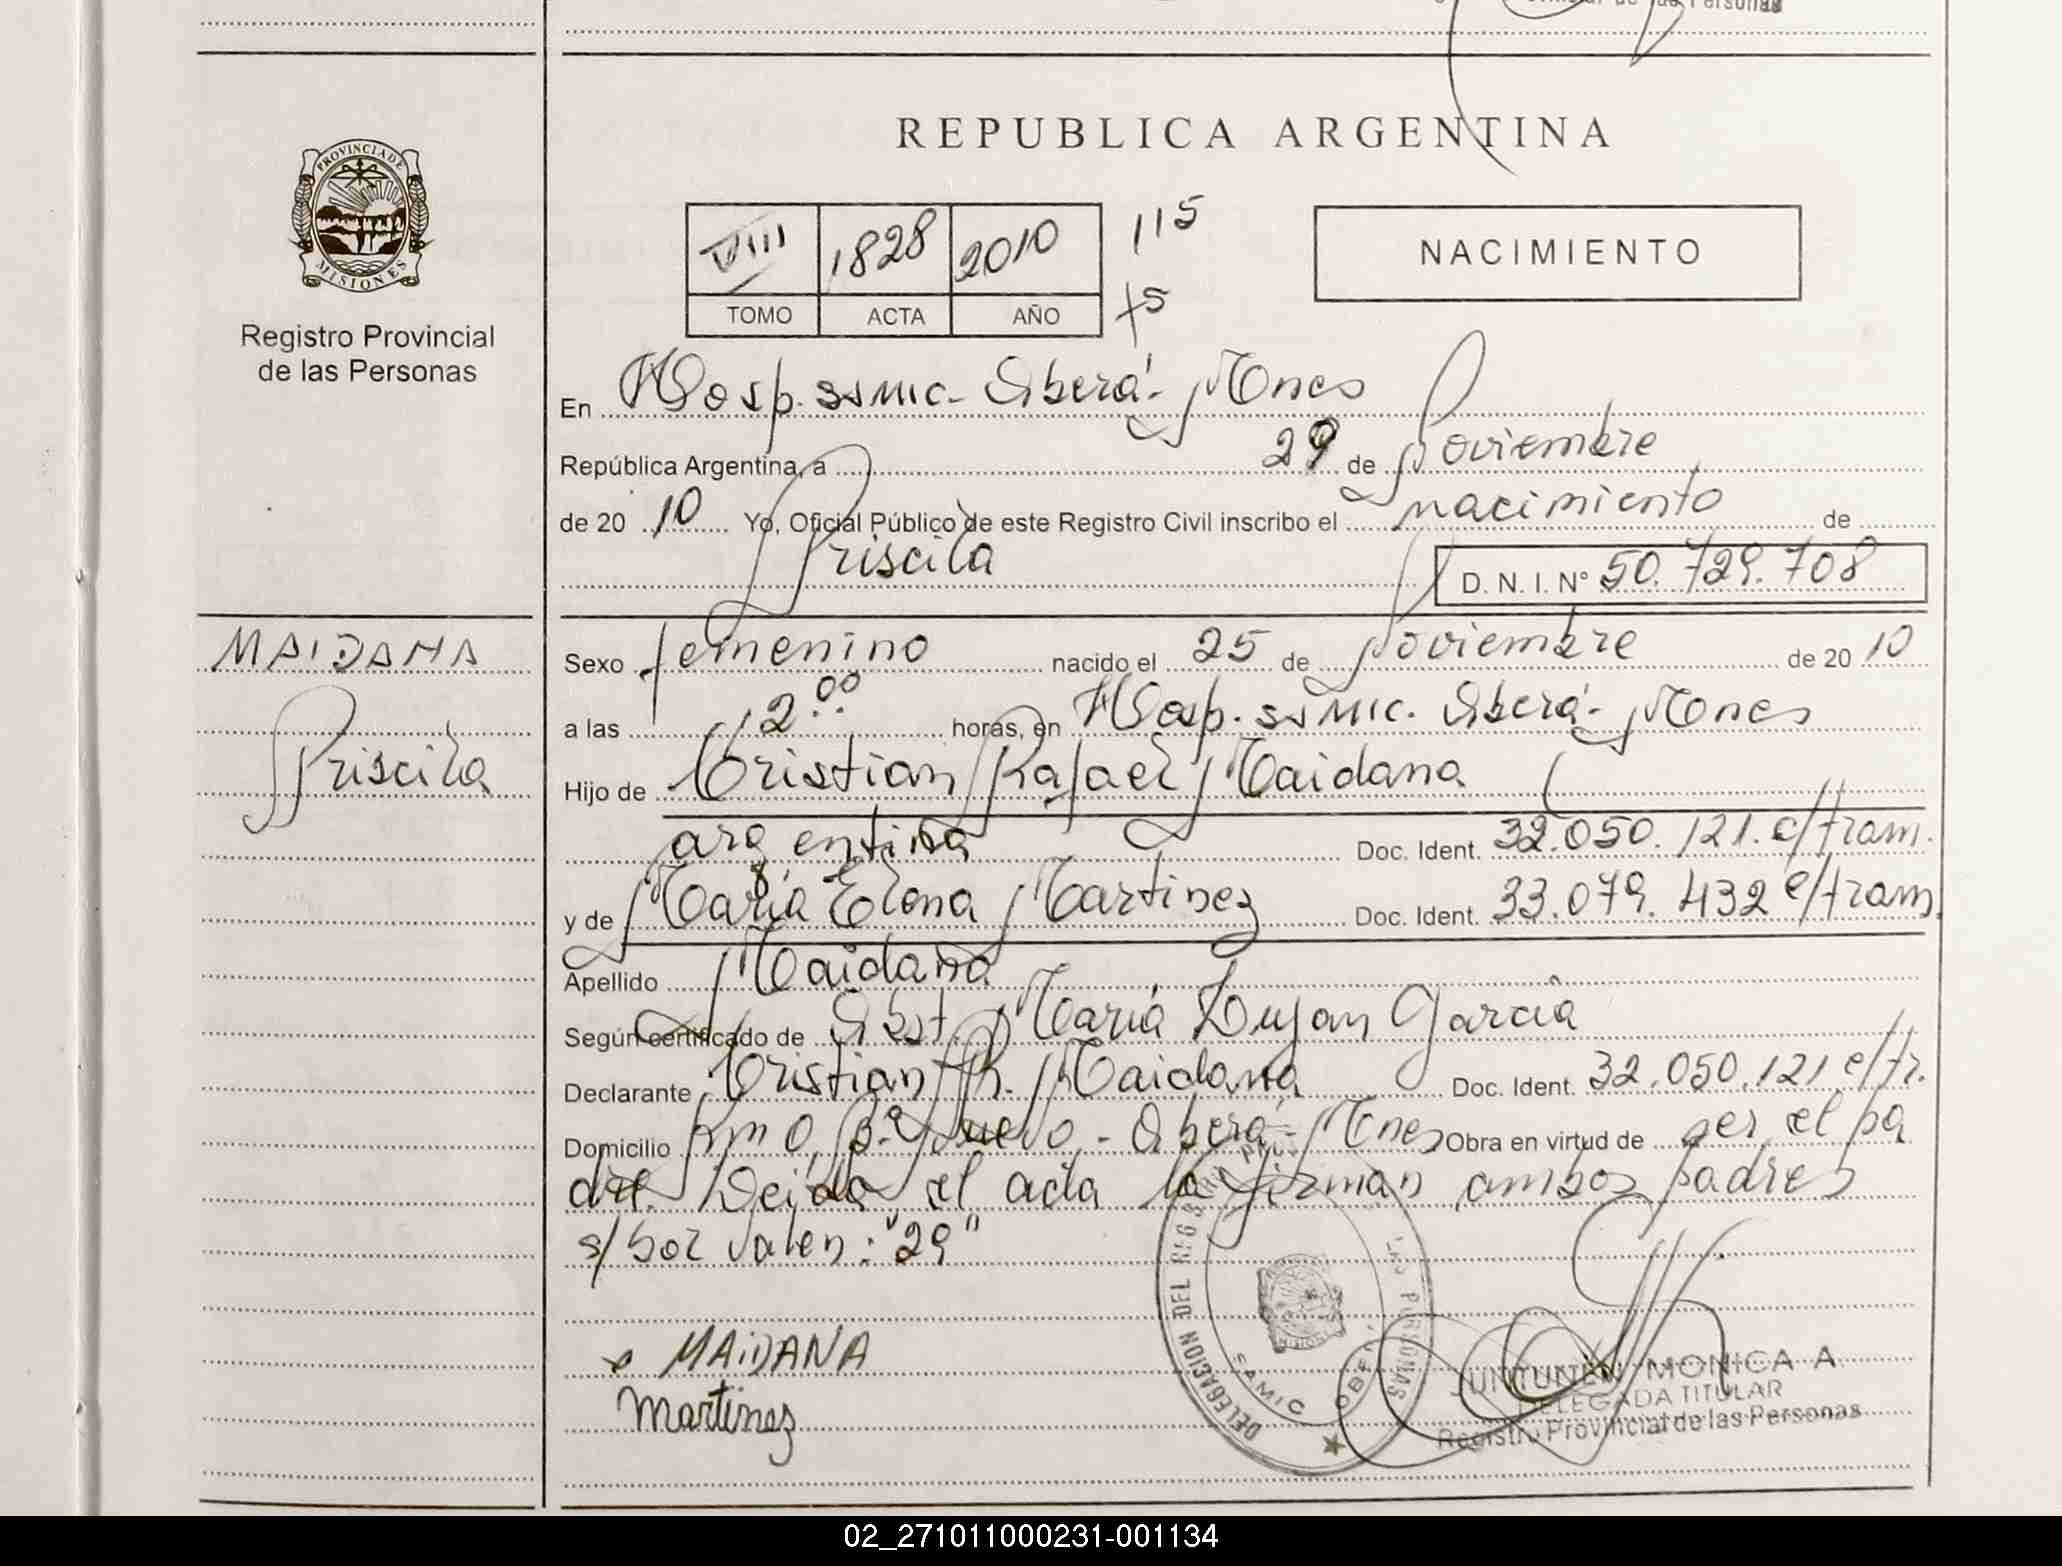 REPUBLICA ARGENTINA
PROVINCIA DE
MISIONES
Registro Provincial
de las Personas
VIII 1828 2010 115
TOMO ACTA AÑO +5
NACIMIENTO
En Hosp. SAMIC - Oberá - Mnes
República Argentina, a 29 de Noviembre
de 20 10 Yo, Oficial Público de este Registro Civil inscribo el nacimiento de
Priscila D. N. I. Nº 50.729.708
MAIDANA
Priscila
Sexo femenino nacido el 25 de Noviembre de 20 10
a las 12:00 horas, en Hosp. SAMIC. Oberá - Mnes
Hijo de Cristian Rafael Maidana
argentina Doc. Ident. 32.050.121. e/tram.
y de María Elena Martinez Doc. Ident. 33.079.432 e/tram.
Apellido Maidana
Según certificado de Obst. María Lujan Garcia
Declarante Cristian R. Maidana Doc. Ident. 32.050.121 e/tr.
Domicilio Km 0, Bº Nuevo - Oberá - Mnes Obra en virtud de ser el pa
dre. Leída el acta la firman ambos padres
s/bor valen: "29"
MAIDANA
Martinez
DELEGACION DEL REGISTRO LAS PERSONAS
MISIONES
SAMIC OBERÁ
JUNTUNEN MONICA A
DELEGADA TITULAR
Registro Provincial de las Personas
02_271011000231-001134